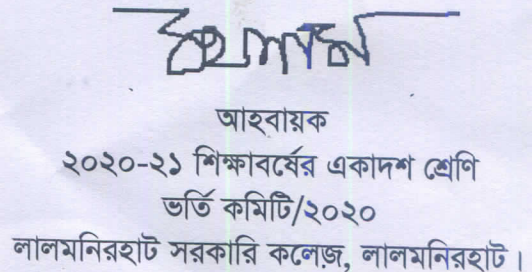 আহবায়ক
২০২০-২১ শিক্ষাবর্ষের একাদশ শ্রেণি
ভর্তি কমিটি/২০২০
লালমনিরহাট সরকারি কলেজ, লালমনিরহাট।